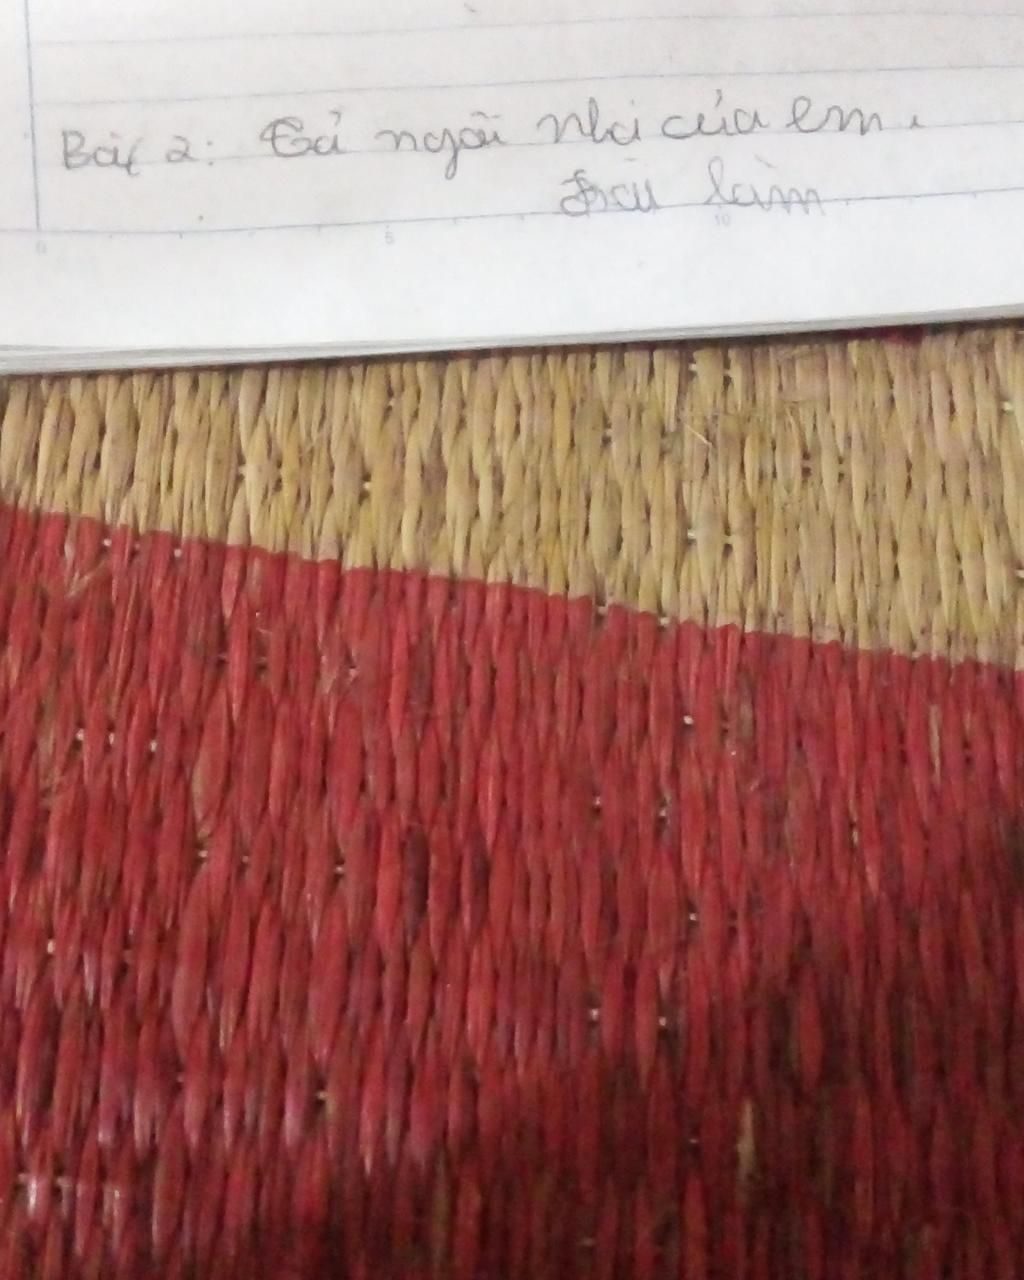 Bài 2: Tả ngôi nhà của em.
Bài làm
0 5 10